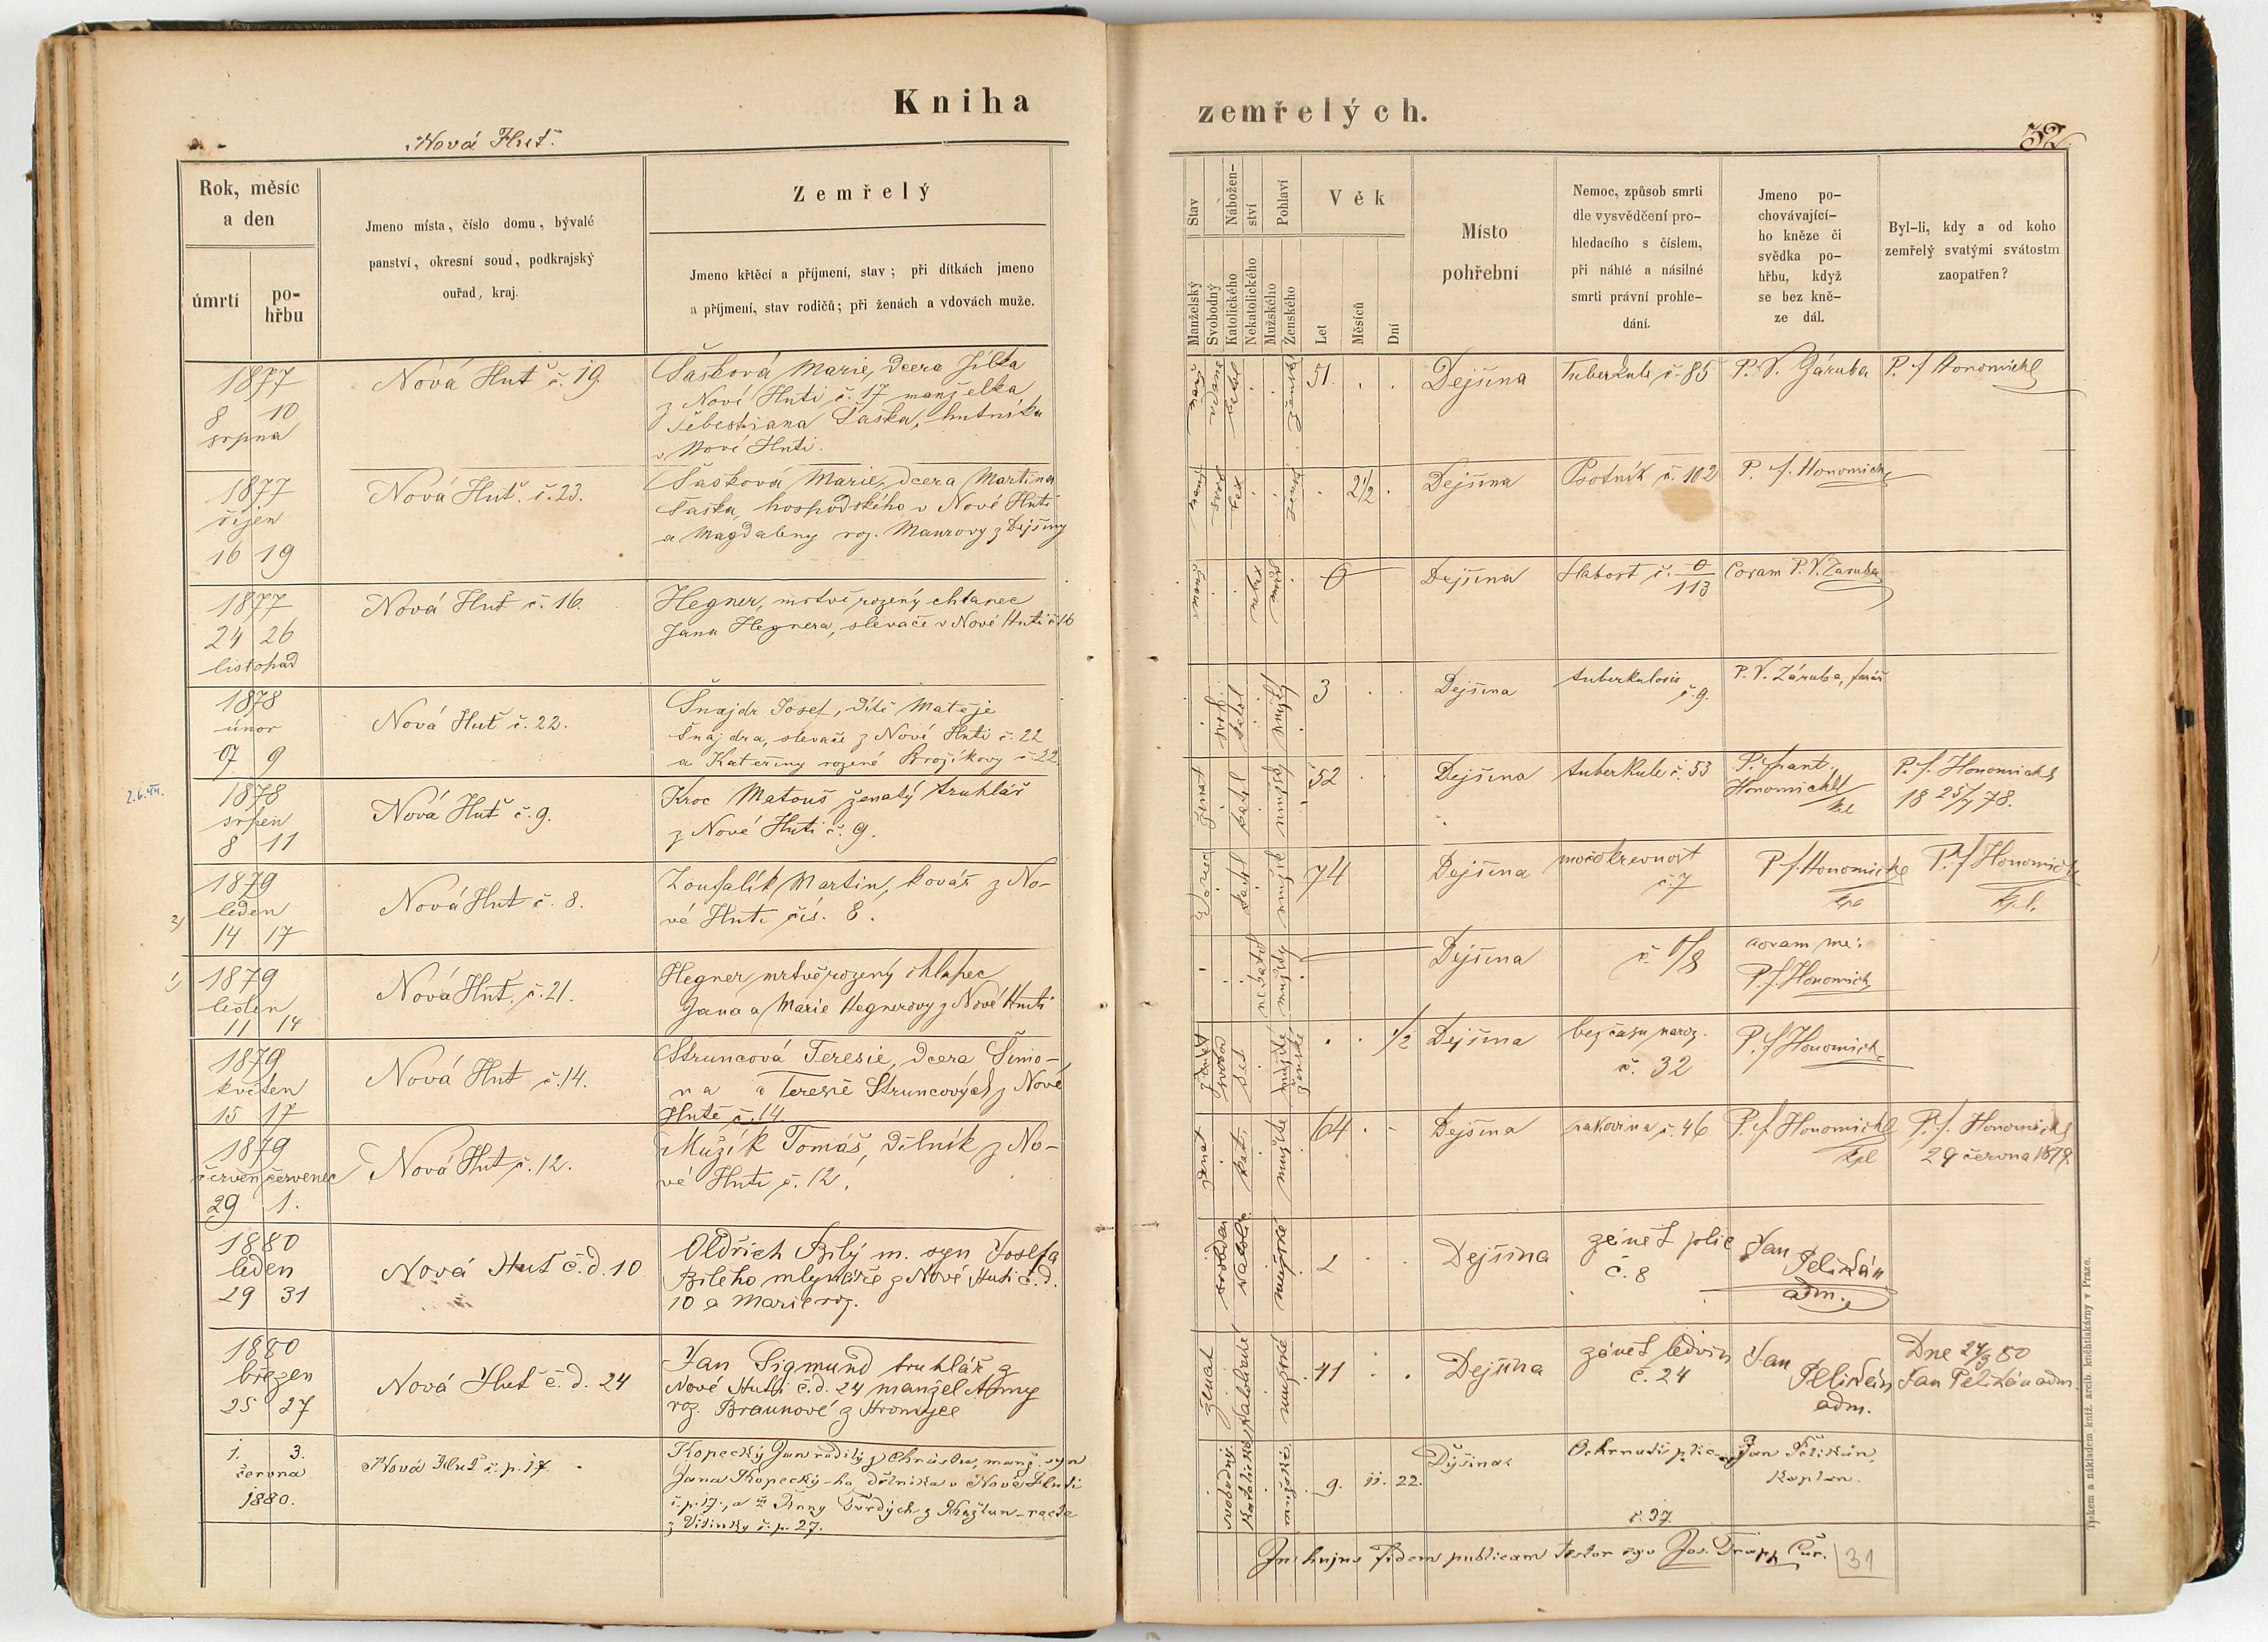 Kniha
zemřelých.
Nová Huť.
32.
Rok, měsíc
a den
úmrtí
po-
hřbu
Jmeno místa, číslo domu, bývalé
panství, okresní soud, podkrajský
ouřad, kraj.
Zemřelý
Jmeno křtěcí a příjmení, stav; při dítkách jmeno
a příjmení, stav rodičů; při ženách a vdovách muže.
Stav
Nábožen-
ství
Pohlaví
Věk
Manželský
Svobodný
Katolického
Nekatolického
Mužského
Ženského
Let
Měsíců
Dní
Místo
pohřební
Nemoc, způsob smrti
dle vysvědčení pro-
hledacího s číslem,
při náhlé a násilné
smrti právní prohle-
dání.
Jmeno po-
chovávající-
ho kněze či
svědka po-
hřbu, když
se bez kně-
ze dál.
Byl-li, kdy a od koho
zemřelý svatými svátostmi
zaopatřen?
1877
8 10
srpna
Nová Huť č. 19.
Šašková Marie, dcera Jílka
z Nové Huti č. 17 manželka
Šebestiana Šaška, hutníka
v Nové Huti.
vdaná
ženské
51. . .
Dejšina
Tuberkule č. 85
P. V. Záruba
P. f Honomichl
1877
říjen
16 19
Nová Huť. č. 23.
Šašková Marie, dcera Martina
Šaška, hospodského v Nové Huti
a Magdaleny roz. Maurovy z Dejšiny
. 2 1/2 .
Dejšina
Psotník č. 102
P. f. Honomichl
1877
24 26
listopad
Nová Huť č. 16.
Hegner, mrtvě rozený chlapec
Jana Hegnera, slevače v Nové Huti č 16
0
Dejšina
č. 0/113
Coram P. V. Záruba
1878
únor
7 9
Nová Huť č. 22.
Šnajdr Josef, dítě Matěje
Šnajdra, slevače z Nové Huti č. 22
a Kateřiny rozené Brojíkovy č. 22
svob.
katol
mužský
3 . .
Dejšina
tuberkulosis
č. 9.
P. V. Záruba, farář
2.6.44.
1878
srpen
8 11
Nová Huť č. 9.
Kroc Matouš ženatý truhlář
z Nové Huti č. 9.
ženat
katol
mužský
52 . .
Dejšina
tuberkule č. 53
P. frant.
Honomichl
kpl
P. f. Honomichl
18 25/7 78.
2)
1879
leden
14 17
Nová Huť č. 8.
Zoufalík Martin, kovář z No-
vé Huti čís. 8.
vdovec
katol
mužsk
74
Dejšina
močokrevnost
č. 7
P f. Honomichl
kpl
P. f Honomichl
kpl.
1)
1879
leden
11 14
Nová Huť. č. 21.
Hegner mrtvěrozený chlapec
Jana a Marie Hegnerovy z Nové Huti
nekatol
mužský
Dejšina
č. 0/8
coram me:
P. f. Honomichl
1879
květen
15 17
Nová Huť č. 14.
Struncová Teresie, dcera Šimo-
na a Teresie Struncových z Nové
Hutě č. 14
svobod
mužské
ženské
. . 1/2
Dejšina
bez času naroz.
č. 32
P. f Honomichl
1879
červen červenec
29 1.
Nová Huť č. 12.
Mužík Tomáš, dělník z No-
vé Huti č. 12.
ženat
kat.
mužské
64 . .
Dejšina
rakovina č. 46
P. f Honomichl
kpl
P. f. Honomichl
29 června 1879
1880
leden
29 31
Nová Huť č. d. 10
Oldřich Bílý m. syn Josefa
Bílého mlynáře z Nové Huti č. d.
10 a Marie roz.
svobodný
katolic
mužské
2 .
Dejšina
zánět plic
č. 8
Jan
Pelikán
adm.
1880
březen
25 27
Nová Huť č. d. 24
Jan Sigmund truhlář z
Nové Huti č. d. 24 manžel Anny
roz. Braunové z Hromice
ženat
katolické
mužské
41 . .
Dejšina
zánět ledvin
č. 24
Jan
Pelikán
adm.
Dne 24/3 80
Jan Pelikán adm.
1. 3.
června
1880.
Nová Huť č. p. 17.
Kopecký Jan rodilý z Chrástu, manž. syn
Jana Kopecký-ho dělníka v Nové Huti
č. p. 17., a Anny Tvrdých z
z Vitinky č. p. 27.
svobodný
katolické
mužské
9. 11. 22.
Dýšina
Ochrnutí plic
č. 37
Jan Pelikán,
kaplan.
In hujus fidem publicam testor ego Jos. Trapp Cur.
31
Tiskem a nákladem kníž. arcib. knihtiskárny v Praze.